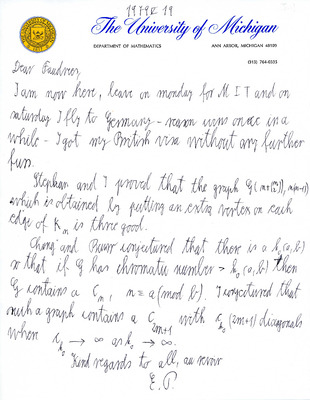 1979 IX 19
The University of Michigan
DEPARTMENT OF MATHEMATICS
ANN ARBOR, MICHIGAN 48109
(313) 764-0335
Dear Faudree,
I am now here, leave on monday for M I T and on
saturday I fly to Germany - in a
while - I got my British visa without any further
fuss.
Stephan and I proved that the graph G(m+(m 2), m(m-1))
which is obtained by putting an extra vertex on each
edge of Km is three good.
and conjectured that there is a k0(a, b)
so that if G has chromatic number > k0(a, b) then
G contains a Cm, m ≡ a (mod b). I conjectured that
such a graph contains a C2m+1 with rk0 (2m+1) diagonals
when rk0 → ∞ as k0 → ∞.
Kind regards to all, au revoir
E. P.